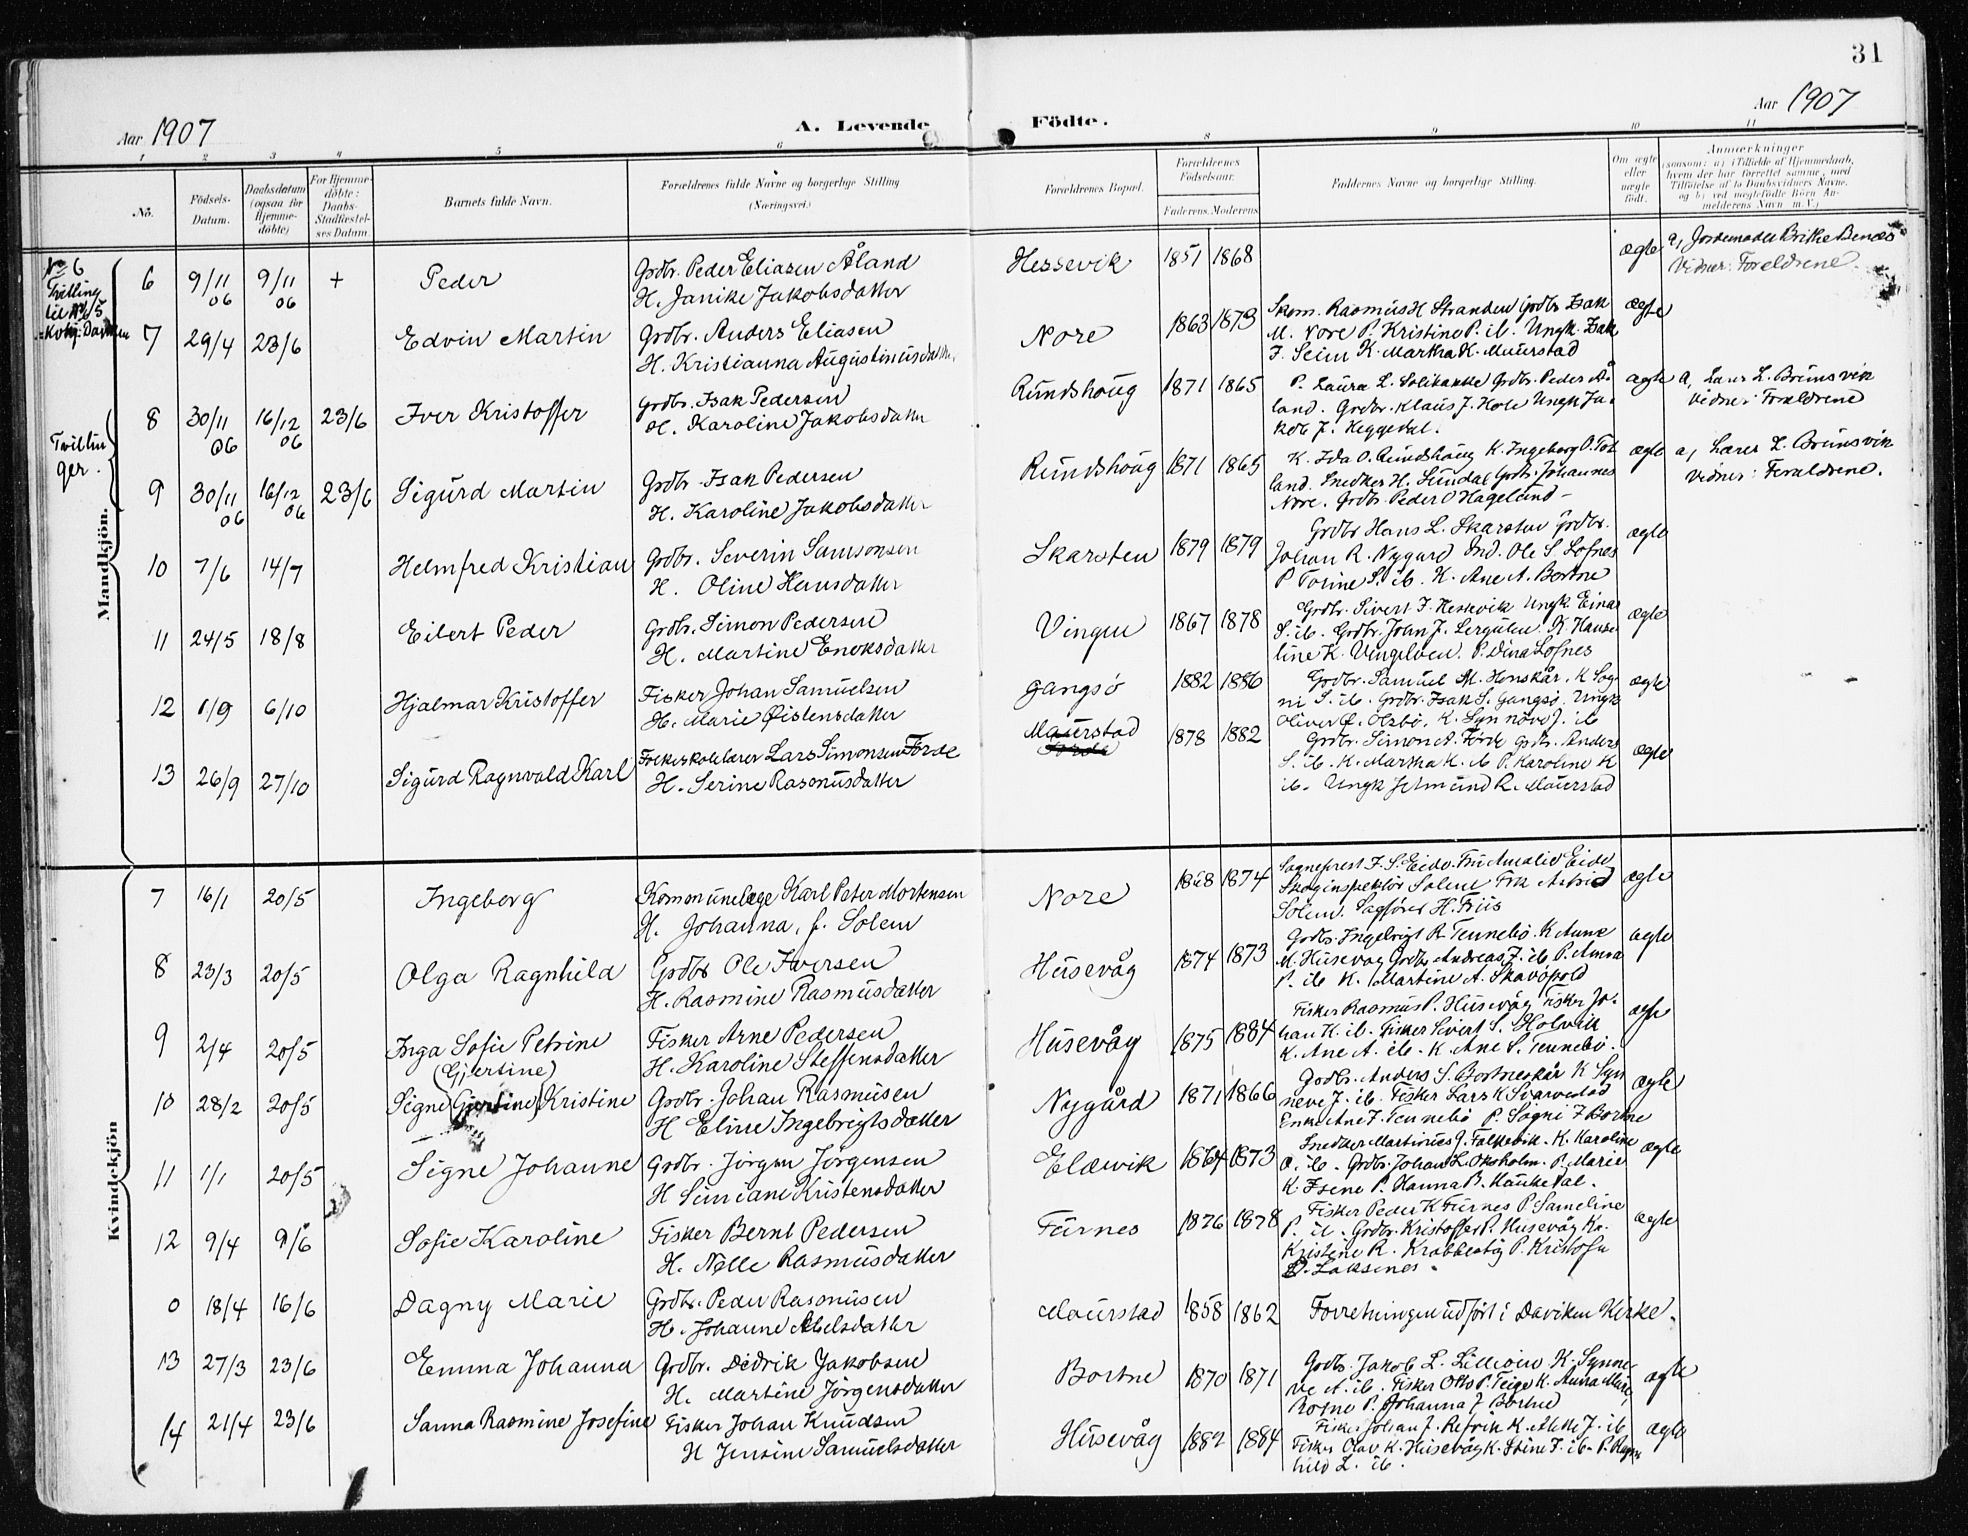 31
Aar 1907
A. Levende
Födte.
Aar 1907
1 2 3 4 5 6 8 9 10 11
No.
Födsels-Datum.
Daabsdatum (ogsaa for Hjemme-döbte)
For Hjemme-döbte: Daabs-Stadfæstel-ses Datum.
Barnets fulde Navn.
Forældrenes fulde Navne og borgerlige Stilling
(Næringsvei.)
Forældrenes Bopæl.
Forældrenes Födselsaar.
Faderens. Moderens.
Faddernes Navne og borgerlige Stilling.
Om ægte eller uægte födt.
Anmærkninger
(saasom: a) i Tilfælde af Hjemmedaab, hvem der har forrettet samme, med Tilföielse af to Daabsvidners Navne, og b) ved uægtefödte Börn An-melderens Navn m. V.)
Mandkjön.
No 6
Tvilling
til No 5
6 9/11 06 9/11 06 + Peder
Grdbr. Peder Eliasen Åland
H. Janike Jakobsdatter
Hessevik 1851 1868 ægte
a, Jordemoder Brithe
Vidner: Foreldrene.
7 29/4 23/6 Edvin Martin
Grdbr. Anders Eliasen
H. Kristianna Augustinusdatter
Nore 1863 1873
Skom. Rasmus H Stranden Grdbr. Isak
M. Nore P. Kristine P. ib. Ungk. Isak
J. Seim K. Martha K. Maurstad
ægte
Tvillin
ger.
8 30/11 06 16/12 06 23/6 Iver Kristoffer
Grdbr. Isak Pedersen
H. Karoline Jakobsdatter
Rundshoug 1871 1865
P. Laura L. Grdbr. Peder Å
land. Grdbr. Klaus J. Hole Ungk Ja
kob J. Heggedal.
ægte
a, Lærer L. Brunsvik
Vidner: Foreldrene
9 30/11 06 16/12 06 23/6 Sigurd Martin
Grdbr Isak Pedersen
H. Karoline Jakobsdatter
Rundshoug 1871 1865
K. Ida O. Rundshoug K. Ingeborg P. Tot
land. Snedker H. Sundal Grdb. Johannes
Nore. Grdbr Peder O Hageland -
ægte
a, Lærer L. Brunsvik
Vidner: Foreldrene.
10 7/6 14/7 Helmfred Kristian
Grdbr. Severin Samsonsen
H. Oline Hansdatter
Skarsten 1879 1879
Grdbr Hans L. Skarsten Grdbr.
Johan R. Nygard Ind. Ole S Lofnes
P Torine S. ib. K. Ane A. Bortne
ægte
11 24/5 18/8 Eilert Peder
Grdbr. Simon Pedersen
H. Martine Enoksdatter
Vingen 1867 1878
Grdbr. Sivert J. Hessevik Ungk. Einar
S. ib. Grdbr. John J. K Hanse
line K. Vingelven. P. Dina Lofnes
ægte
12 1/9 6/10 Hjalmar Kristoffer
Fisker Johan Samuelsen
H. Marie Øistensdatter
Gangsö 1882 1886
Grdbr. Samuel M. Henskår. K Sog
ni S. ib. Grdbr. Isak S. Gangsø. Ungk
Oliver Ø. K. Synnöve J. ib
ægte
13 26/9 27/10 Sigurd Ragnvald Karl
Folkeskolelærer Lars Simonsen Förde
H. Serine Rasmusdatter
Maurstad 1878 1882
Grdbr. Simon A. Förde Grdbr. Anders
S. ib. K. Martha K. ib P. Karoline K
ib. Ungk R. Maurstad
ægte
Kvindekjön
7 16/1 20/5 Ingeborg
Kommunelæge Karl Peter Mortensen
H. Johanna, f. Solem
Nore 1868 1874
Sogneprest J. S. Eide. Fru Amalie Eide
Skoginspektör Solem Frk Astrid
Solem. Sagförer H. Friis
ægte
8 23/3 20/5 Olga Ragnhild
Grdbr Ole Iversen
H. Rasmine Rasmusdatter
Husevåg 1874 1873
Grdbr. Ingebrigt R. Tennebö. K Anne
M. Husevag Grdbr Andreas J. ib P. Anna
P. ib K. Martine A. Skavöpold
ægte
9 2/4 20/5 Inga Sofie Petrine
Fisker Arne Pedersen
H. Karoline Steffensdatter
Husevåg 1875 1884
Fisker Rasmus P. Husevåg Fisker Jo-
han K. ib. Fisker Sivert S. Holvik
K. Ane A. ib. K. Ane S. Tennebö.
ægte
10 28/2 20/5 (Gjertine)
Signe (Gjertine) Kristine
Grdbr. Johan Rasmusen
H Eline Ingebrigtsdatter
Nygård 1871 1866
Grdbr. Anders S. Bortneskår K Syn
neve J. ib. Fisker Lars K Svarvestad
Enke Ane J. Tennebö P. Sogni J Bortne
ægte
11 1/1 20/5 Signe Johanne
Grdbr. Jörgen Jörgensen
H Simiane Kristensdatter
Eldevik 1864 1873
Snedker Martinus J. Falkevik. K. Karoline
ib. Grdbr. Johan L. Oksholm. P. Marie
K. Isene P. Hanna B. Haukedal.
ægte
12 9/4 9/6 Sofie Karoline
Fisker Bernt Pedersen
H. Nelle Rasmusdatter
Furnes 1876 1878
Fisker Peder K Furnes P. Sameline
P. ib. Grdbr. Kristoffer P. Husevåg K.
Kristine R. Krabbestig P. Kristofa
D. Laksenes.
ægte
0 18/4 16/6 Dagny Marie
Grdbr. Peder Rasmusen
H. Johanne Abelsdatter
Maurstad 1858 1862
Forretningen udfört i Daviken Kirke.
13 27/3 23/6 Emma Johanna
Grdbr. Didrik Jakobsen
H. Martine Jörgensdatter
Bortne 1870 1871
Grdbr. Jakob L. Lilleöen K. Synne
ve A. ib. Fisker Otto P. Teige K. Anna Marie
P. Johanna J Bortne
ægte
14 21/4 23/6 Sanna Rasmine Josefine
Fisker Johan Knudsen
H Jensine Samuelsdatter
Husevåg 1882 1884
Fisker Johan J. Refvik K. Mette J. ib
Fisker Olav K. Husevåg K. Stine J. ib. P. Ragn
hild L. ib.
ægte